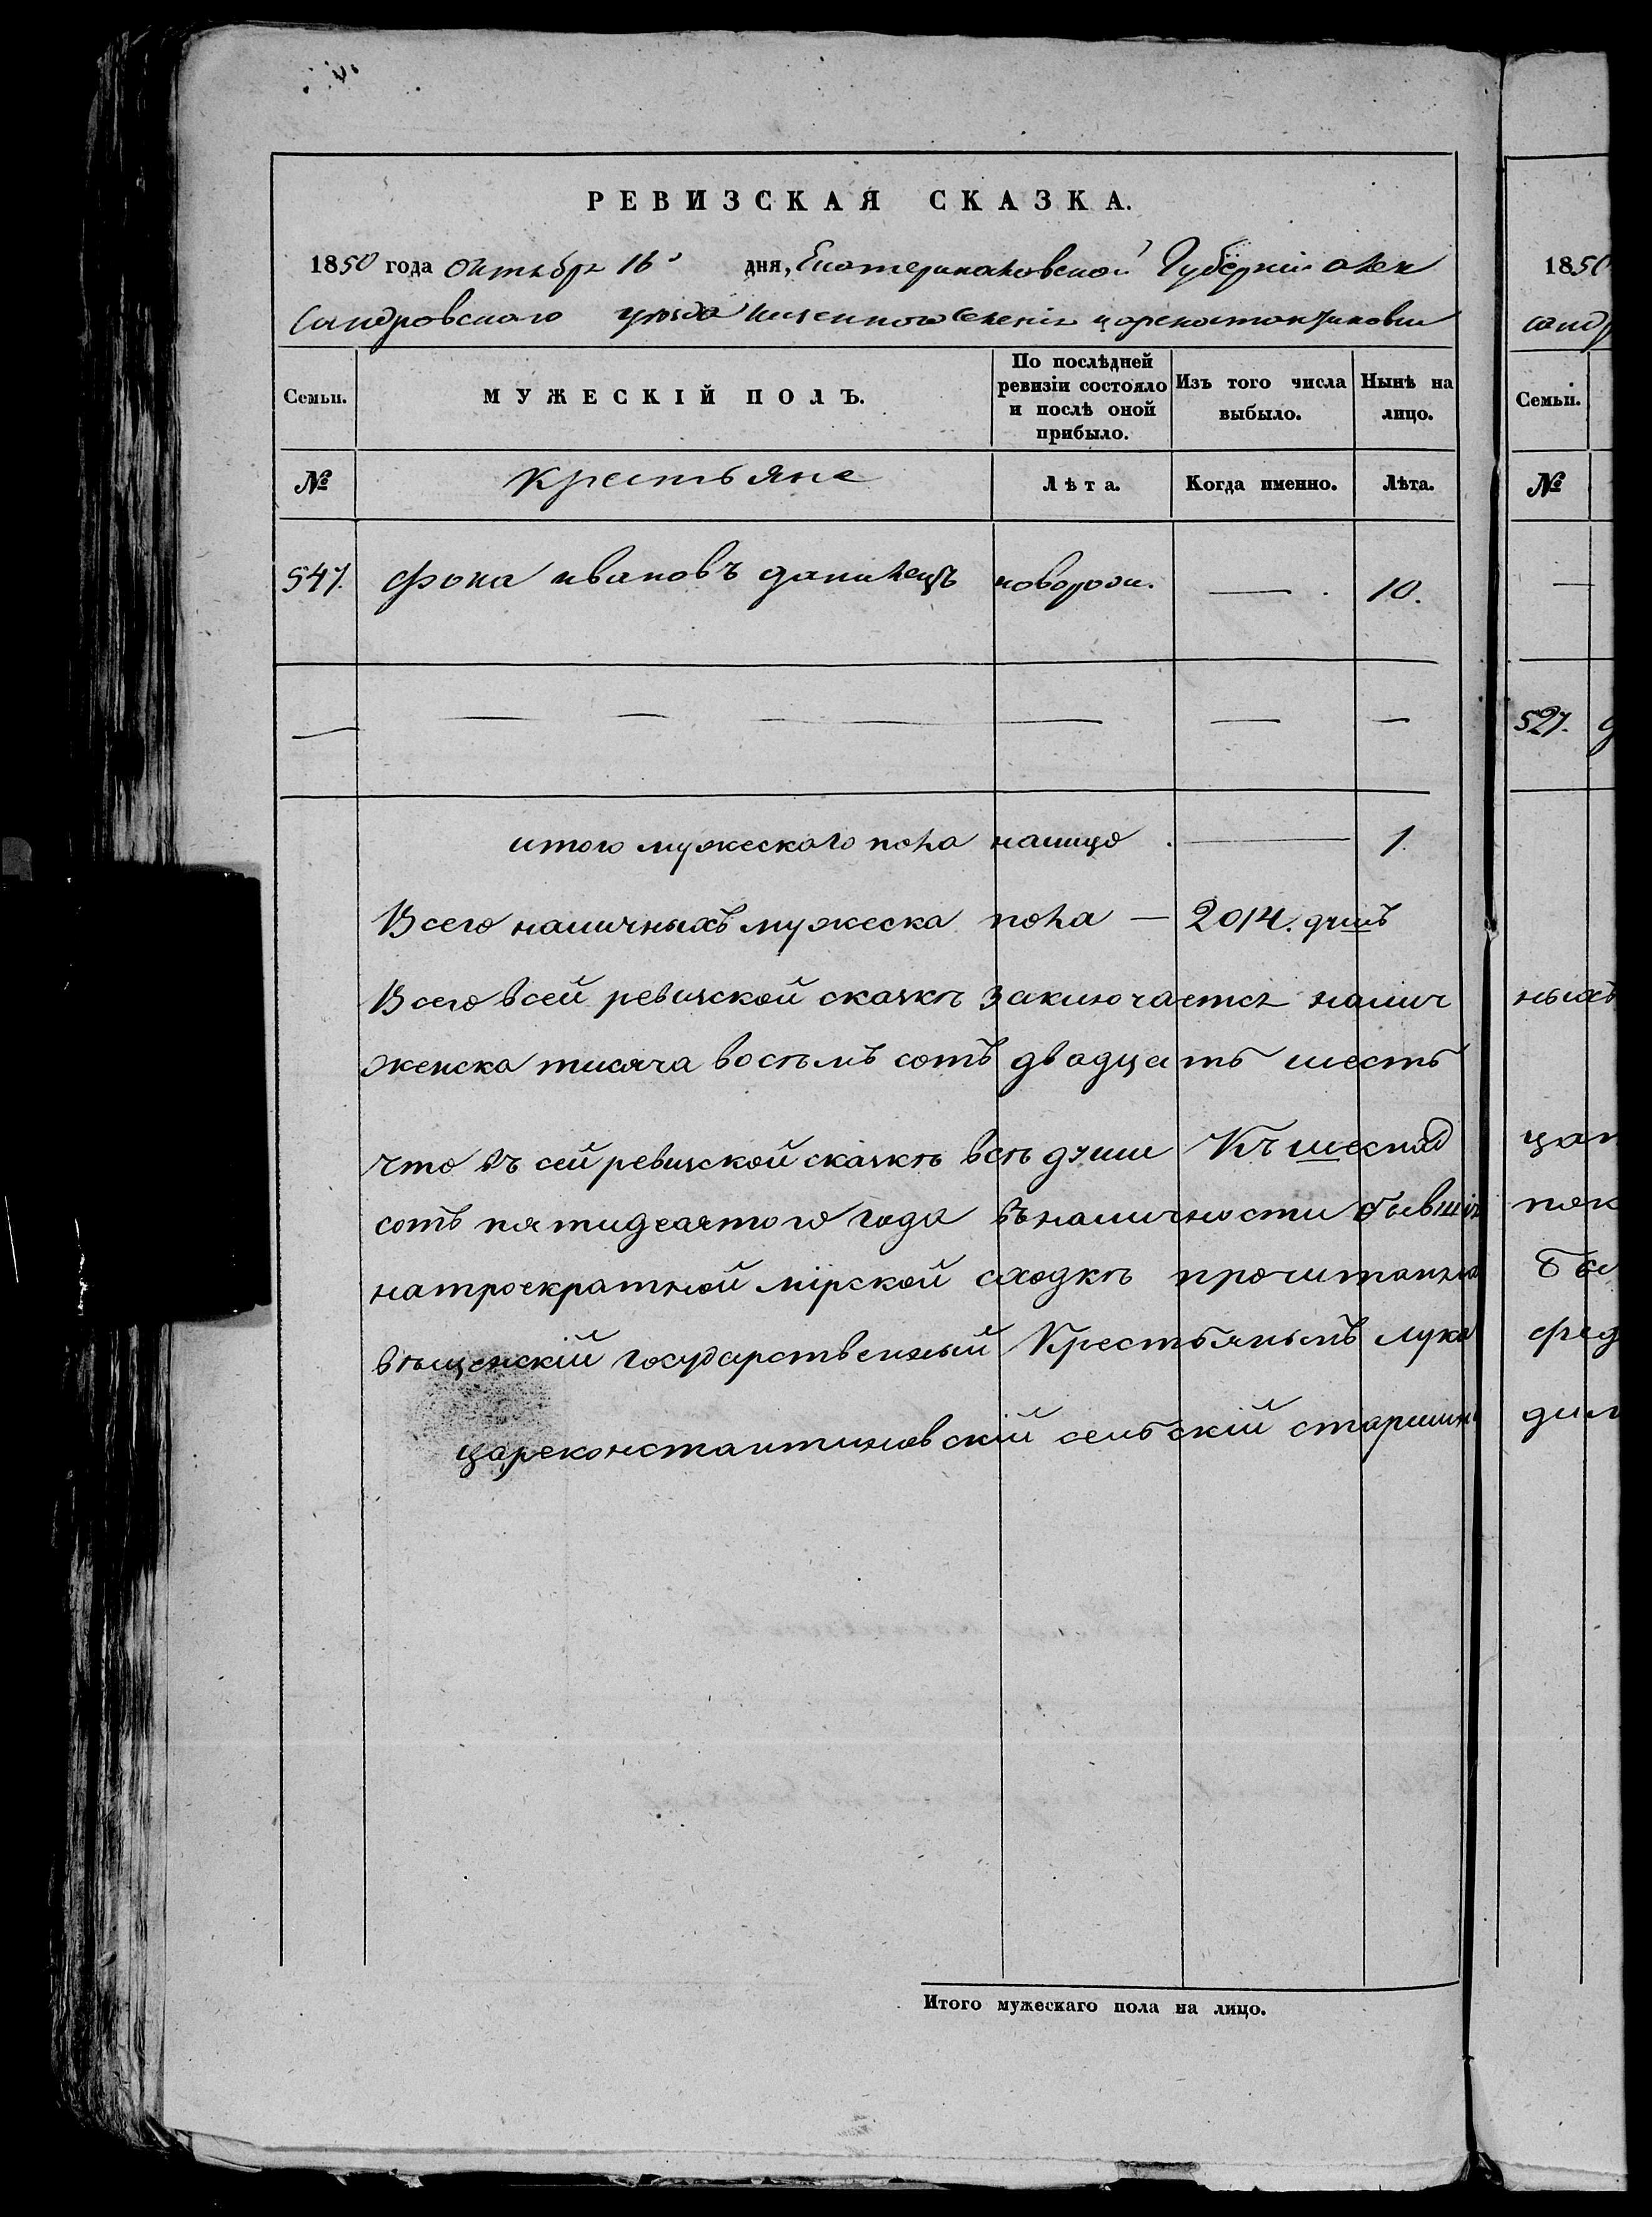 РЕВИЗСКАЯ СКАЗКА.
1850 года октября 16 дня, Екатеринославской Губерніи Алек
сандровского уезда казенного селенія цареконстантиновки
Семьи.
МУЖЕСКІЙ ПОЛЪ.
По послѣдней ревизіи состояло и послѣ оной прибыло.
Изъ того числа выбыло.
Нынѣ на лицо.
№
Крестьяне
Лѣта.
Когда именно.
Лѣта.
547. Фока ивановъ данилецъ новорож. — 10.
итого мужеского пола налицо — 1.
Всего наличныхъ мужеска пола — 2014. душъ
Всего всей ревизской сказкѣ заключается налич
женска тисяча восѣмъ сотъ двадцать шесть
что въ сей ревизской сказкѣ всѣ души Къ
сотъ пятидесятого года въ наличности бывшія
на троекратной мірской сходкѣ прочитанна
вѣщенскій государственный Крестьянымъ лука
цареконстантиновскій сельскій старшина
Итого мужескаго пола на лицо.
1850
санд
Семьи.
№
527.
ныхъ
цат
пок
бы
фед
дил